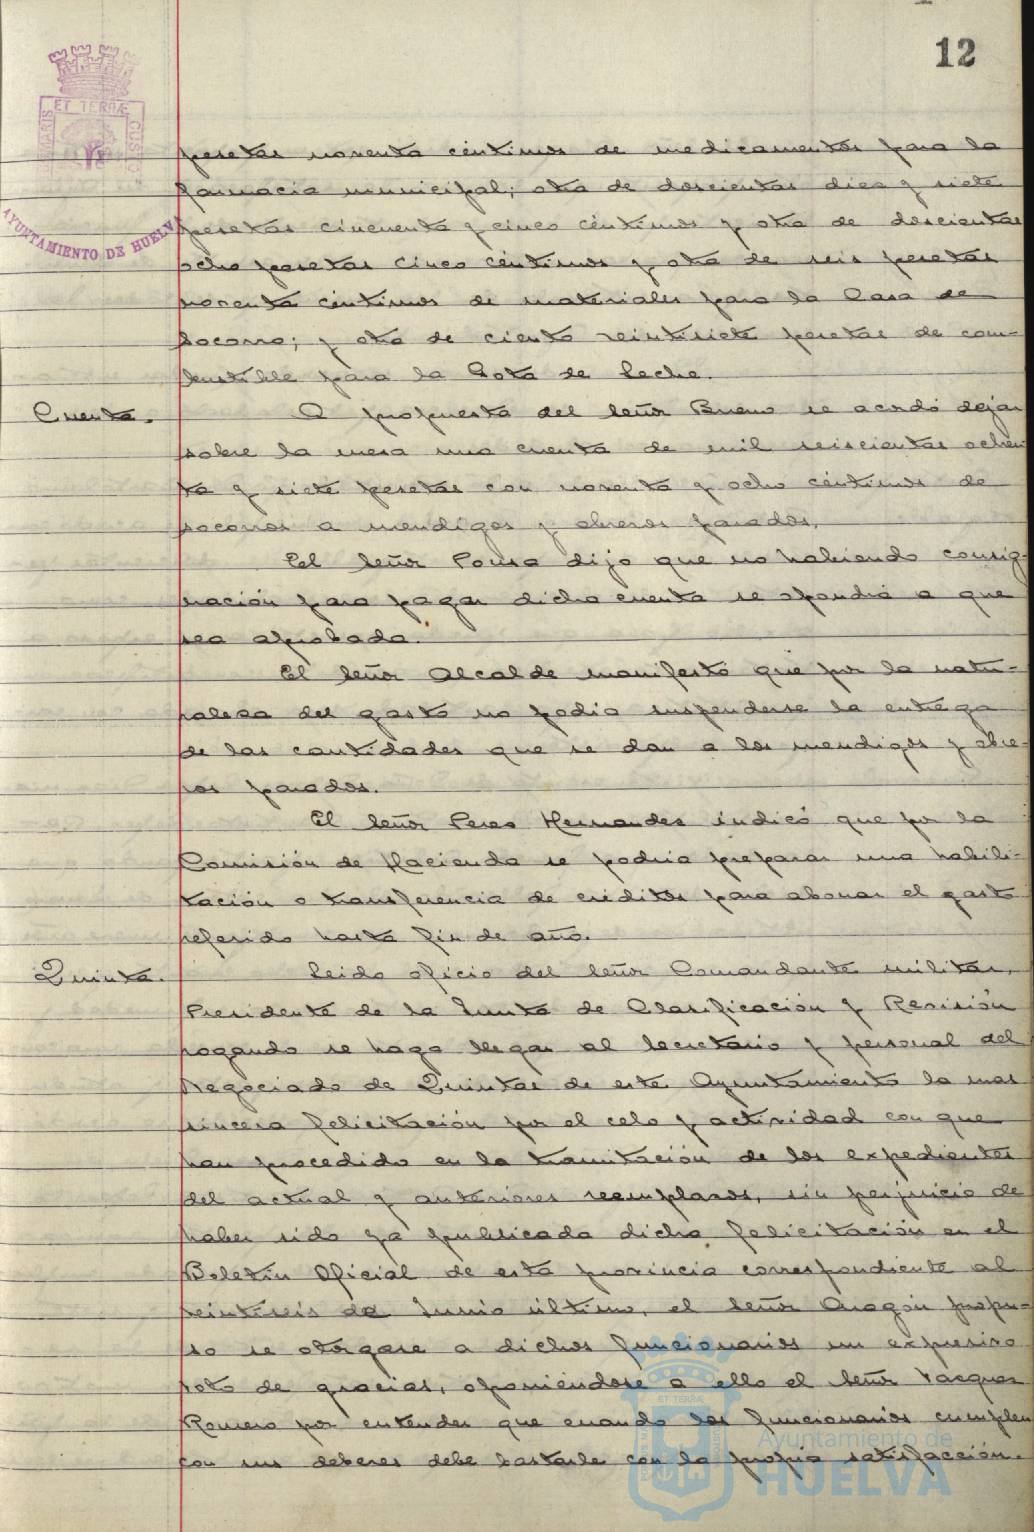 12
ET TERRÆ
MARIS
CUSTO
AYUNTAMIENTO DE HUELVA
pesetas noventa céntimos de medicamentos para la
farmacia municipal; otra de doscientas diez y siete
pesetas cincuenta y cinco céntimos y otra de doscientas
ocho pesetas cinco céntimos y otra de seis pesetas
noventa céntimos de materiales para la Casa de
Socorro; y otra de ciento veintisiete pesetas de com-
bustible para la Gota de Leche.
Cuenta.
A propuesta del Señor Bueno se acordó dejar
sobre la mesa una cuenta de mil seiscientas ochen-
ta y siete pesetas con noventa y ocho céntimos de
socorros a mendigos y obreros parados.
El Señor Pousa dijo que no habiendo consig-
nación para pagar dicha cuenta se opondrá a que
sea aprobada.
El Señor Alcalde manifestó que por la natu-
raleza del gasto no podía suspenderse la entrega
de las cantidades que se dan a los mendigos y obre-
ros parados.
El Señor Perez Hernandez indicó que por la
Comisión de Hacienda se podría preparar una habili-
tación o transferencia de créditos para abonar el gasto
referido hasta fin de año.
Quinta.
Leido oficio del Señor Comandante militar,
Presidente de la Junta de Clasificación y Revisión
rogando se haga llegar al Secretario y personal del
Negociado de Quintas de este Ayuntamiento la mas
sincera felicitación por el celo y actividad con que
han procedido en la tramitación de los expedientes
del actual y anteriores reemplazos, sin perjuicio de
haber sido ya publicada dicha felicitación en el
Boletín Oficial de esta provincia correspondiente al
veintiseis de Junio último, el Señor Aragón propu-
so se otorgase a dichos funcionarios un expresivo
voto de gracias, oponiéndose a ello el Señor Vazquez
Romero por entender que cuando los funcionarios cumplen
con sus deberes debe bastarle con la propia satisfacción.
Ayuntamiento de
HUELVA